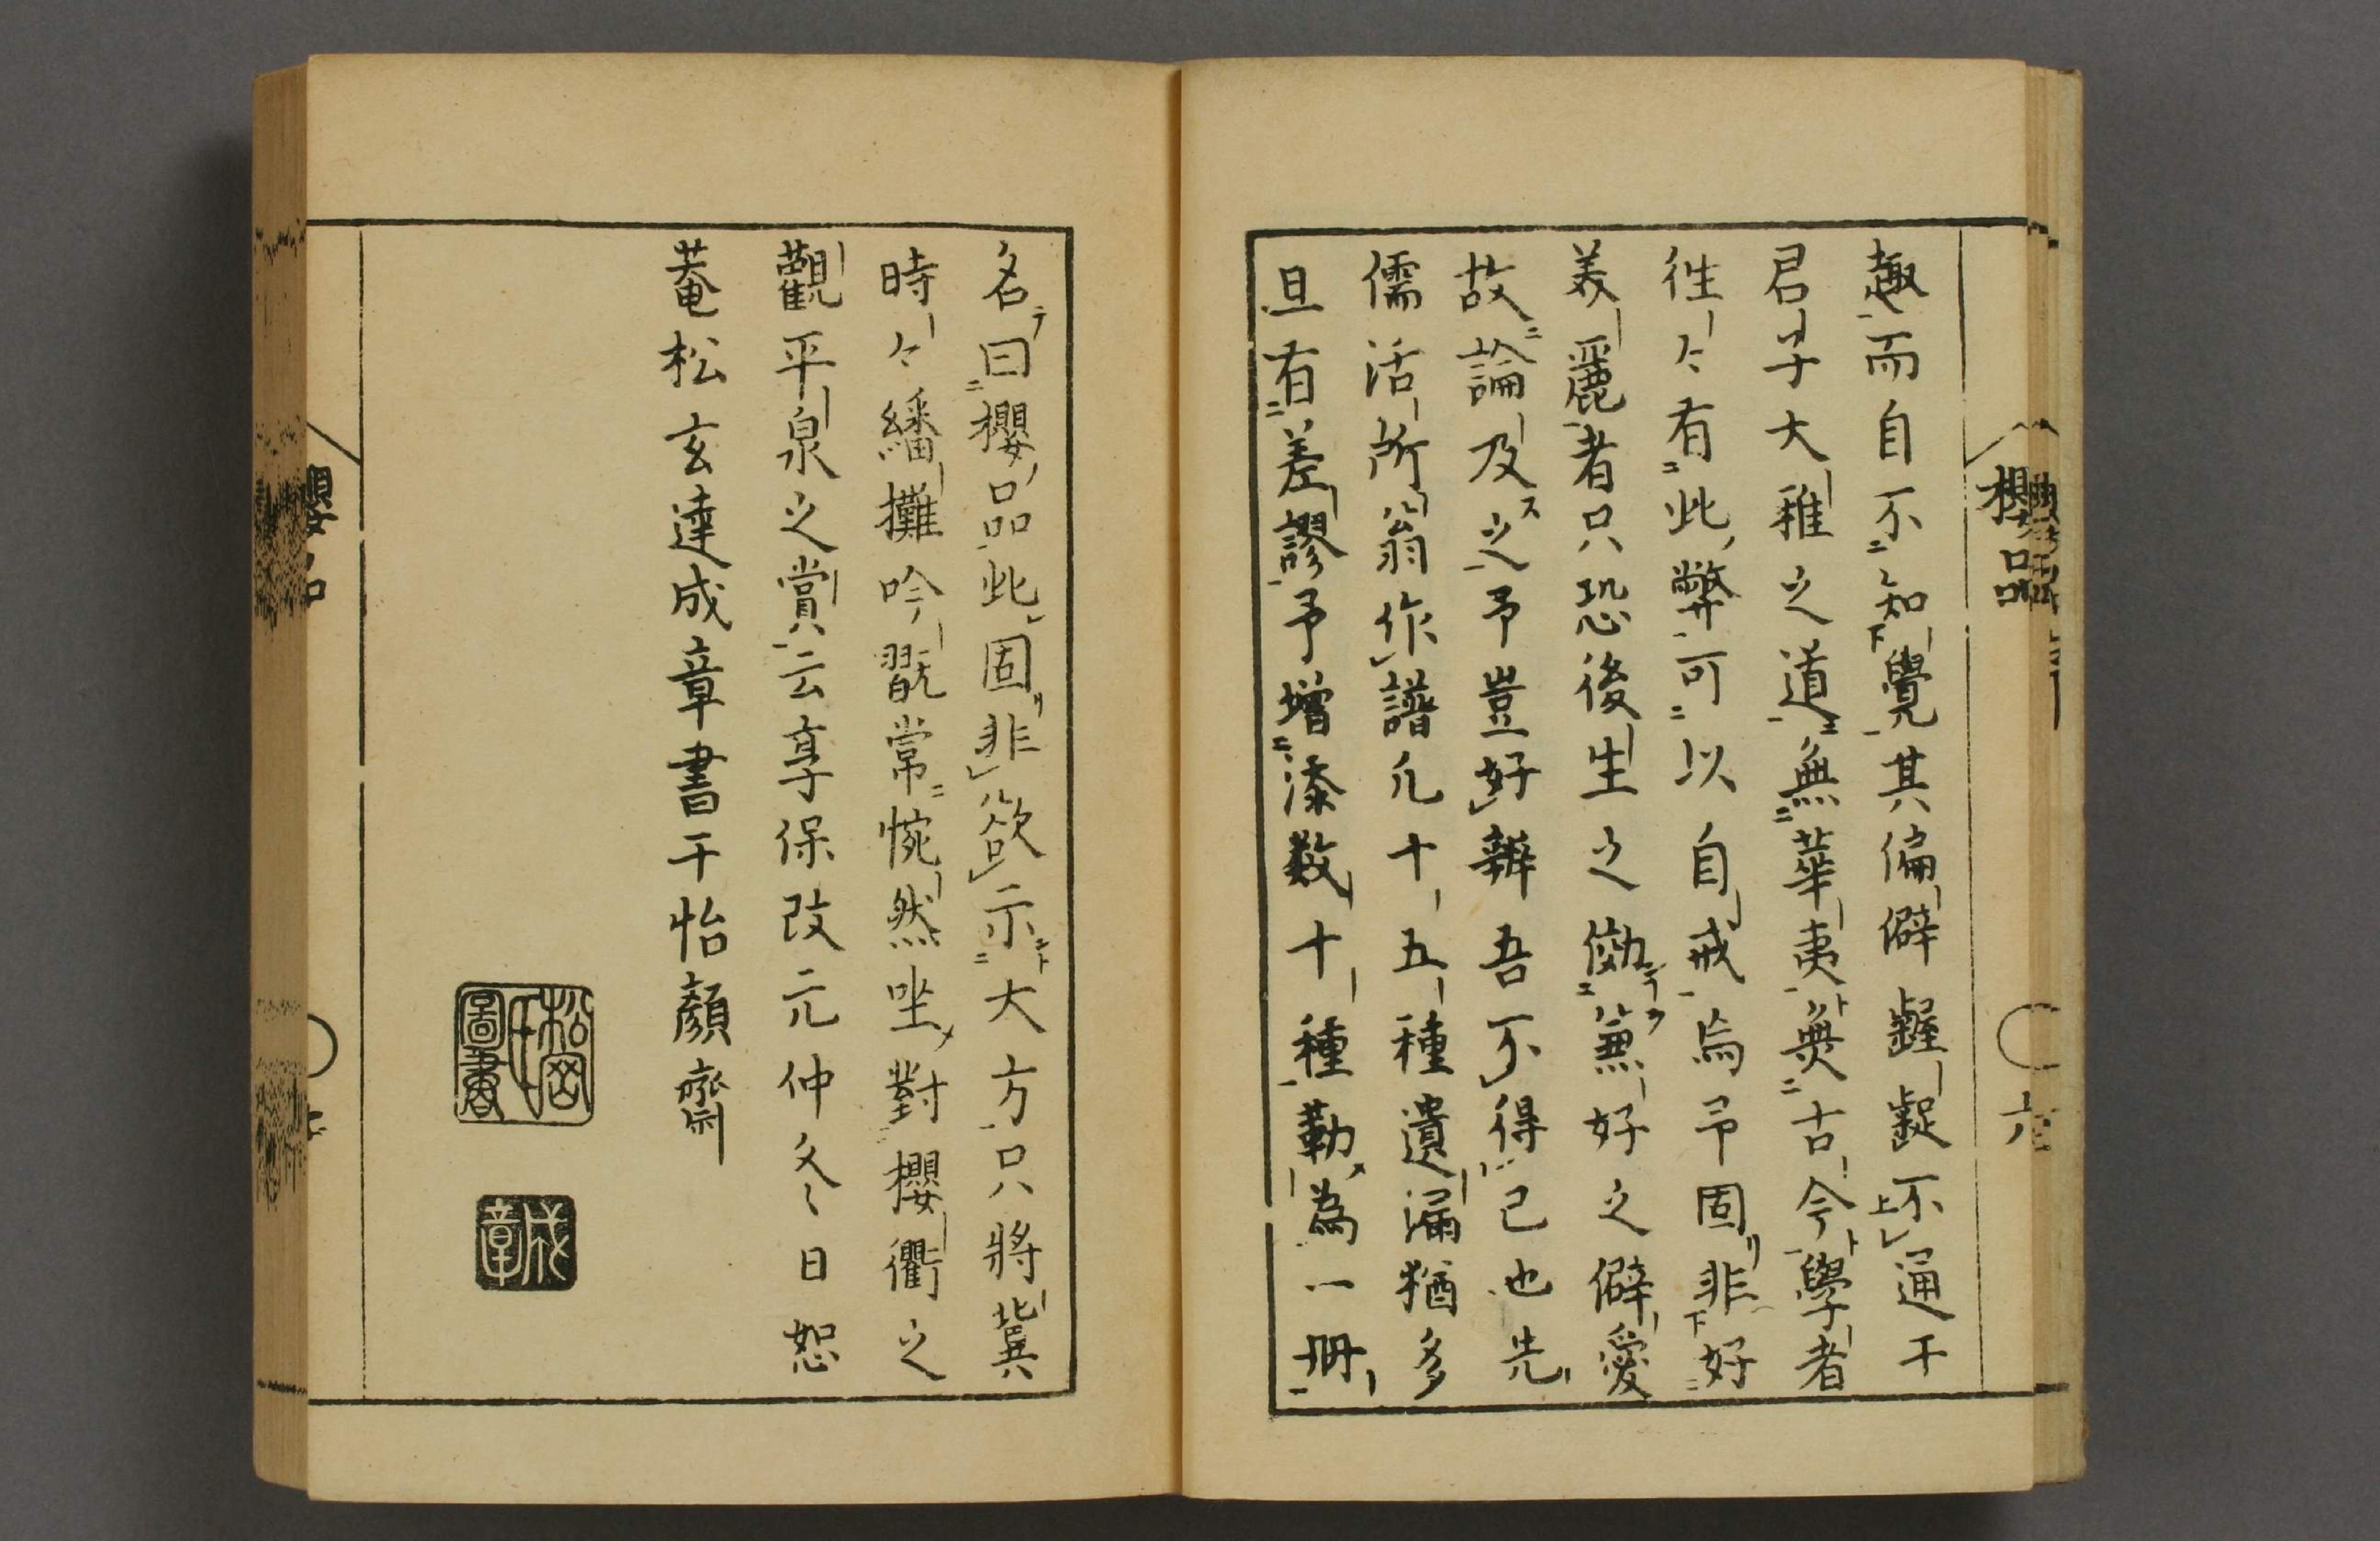 趣而自不知覺其偏僻齷齪不通于
君子大雅之道無華夷無古今學者
徃々有此弊可以自戒焉予固非好
美麗者只恐後生之効兼好之僻愛
故論及之予豈好辨吾不得已也先
儒活所翁作譜凢十五種遺漏猶多
且有差謬予增添数十種勒為一冊
櫻品
六
名曰櫻品此固非欲示大方只將冀
時々繙攤吟翫常惋然坐對櫻衢之
觀平泉之賞云享保改元仲冬日恕
菴松玄達成章書于怡顏齋
松岡氏圖書
成章